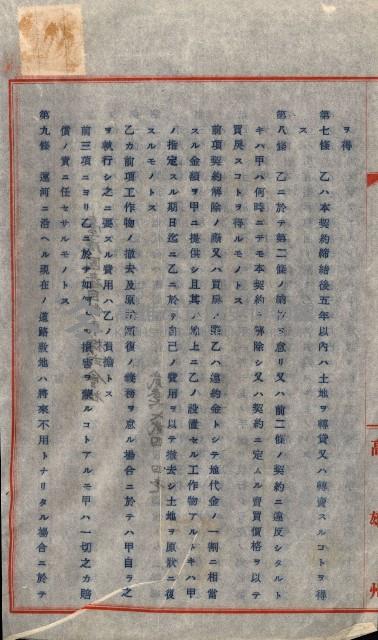 ヲ得
第七條 乙ハ本契約締結後五年以內ハ土地ヲ轉貸又ハ轉賣スルコトヲ得
ス
第八條 乙ニ於テ第二條ノ納付ヲ怠リ又ハ前二條ノ契約ニ違反シタルト
キハ甲ハ何時ニテモ本契約ヲ解除シ又ハ契約ニ定ムル賣買價格ヲ以テ
買戾スコトヲ得ルモノトス
前項契約解除ノ際又ハ買戾ノ際乙ハ違約金トシテ地代金ノ一割ニ相當
スル金額ヲ甲ニ提供シ且其ノ地上ニ乙ノ設置セル工作物アルトキハ甲
ノ指定スル期日迄ニ乙ニ於テ自己ノ費用ヲ以テ撤去シ土地ヲ原狀ニ復
スルモノトス
乙カ前項工作物ノ撤去及原狀回復ノ義務ヲ怠ル場合ニ於テハ甲自ラ之
ヲ執行シ之ニ要スル費用ハ乙ノ負擔トス
前三項ニヨリ乙ニ於テ如何ナル損害ヲ蒙ルコトアルモ甲ハ一切之カ賠
償ノ責ニ任セサルモノトス
第九條 運河ニ沿ヘル現在ノ道路敷地ハ將來不用トナリタル場合ニ於テ
高雄州